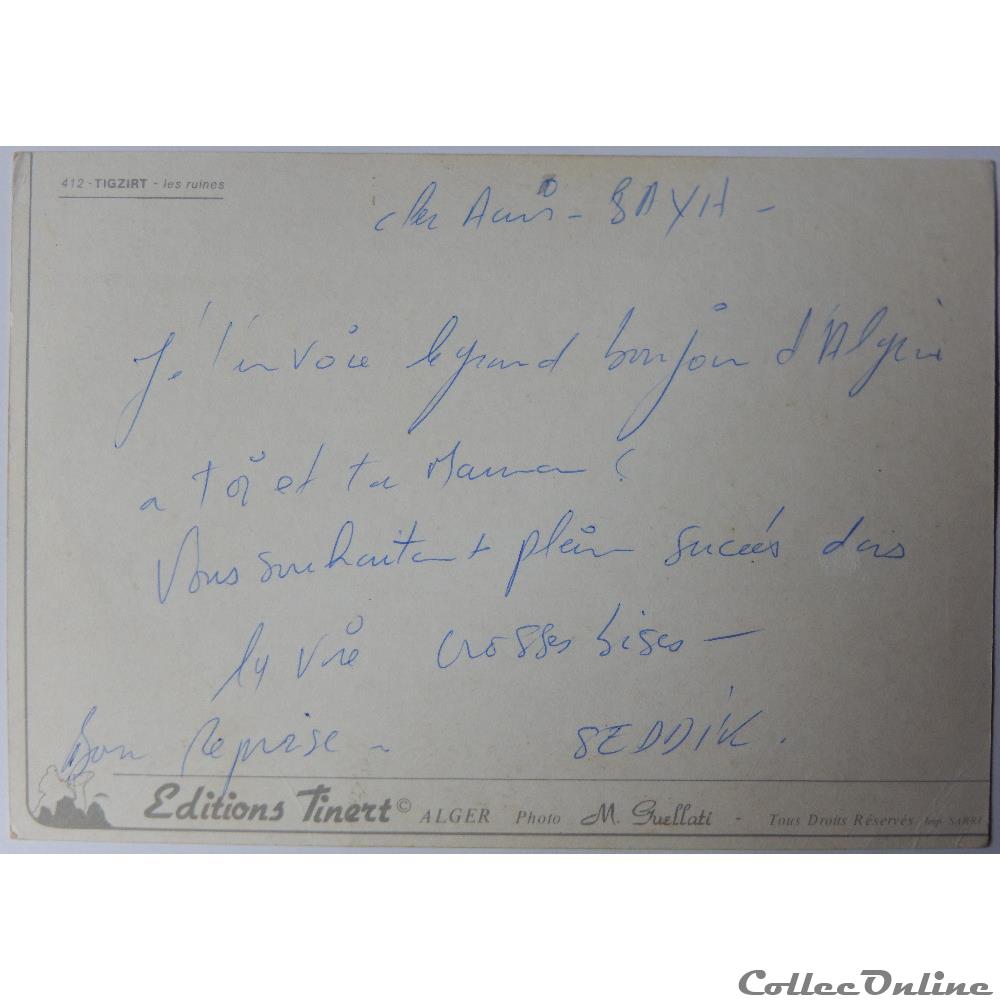 412 - TIGZIRT - les ruines
cher Amis - SAYH -
Je t'envoie le grand bonjour d'Algerie
a toi et ta Maman
Vous souhaitant plein succés dans
la vie Grosses bises -
Bon Reprise - SEDDIK.
Editions Tinert © ALGER Photo M. Guellati - Tous Droits Réservés Imp. SARRI
CollecOnline